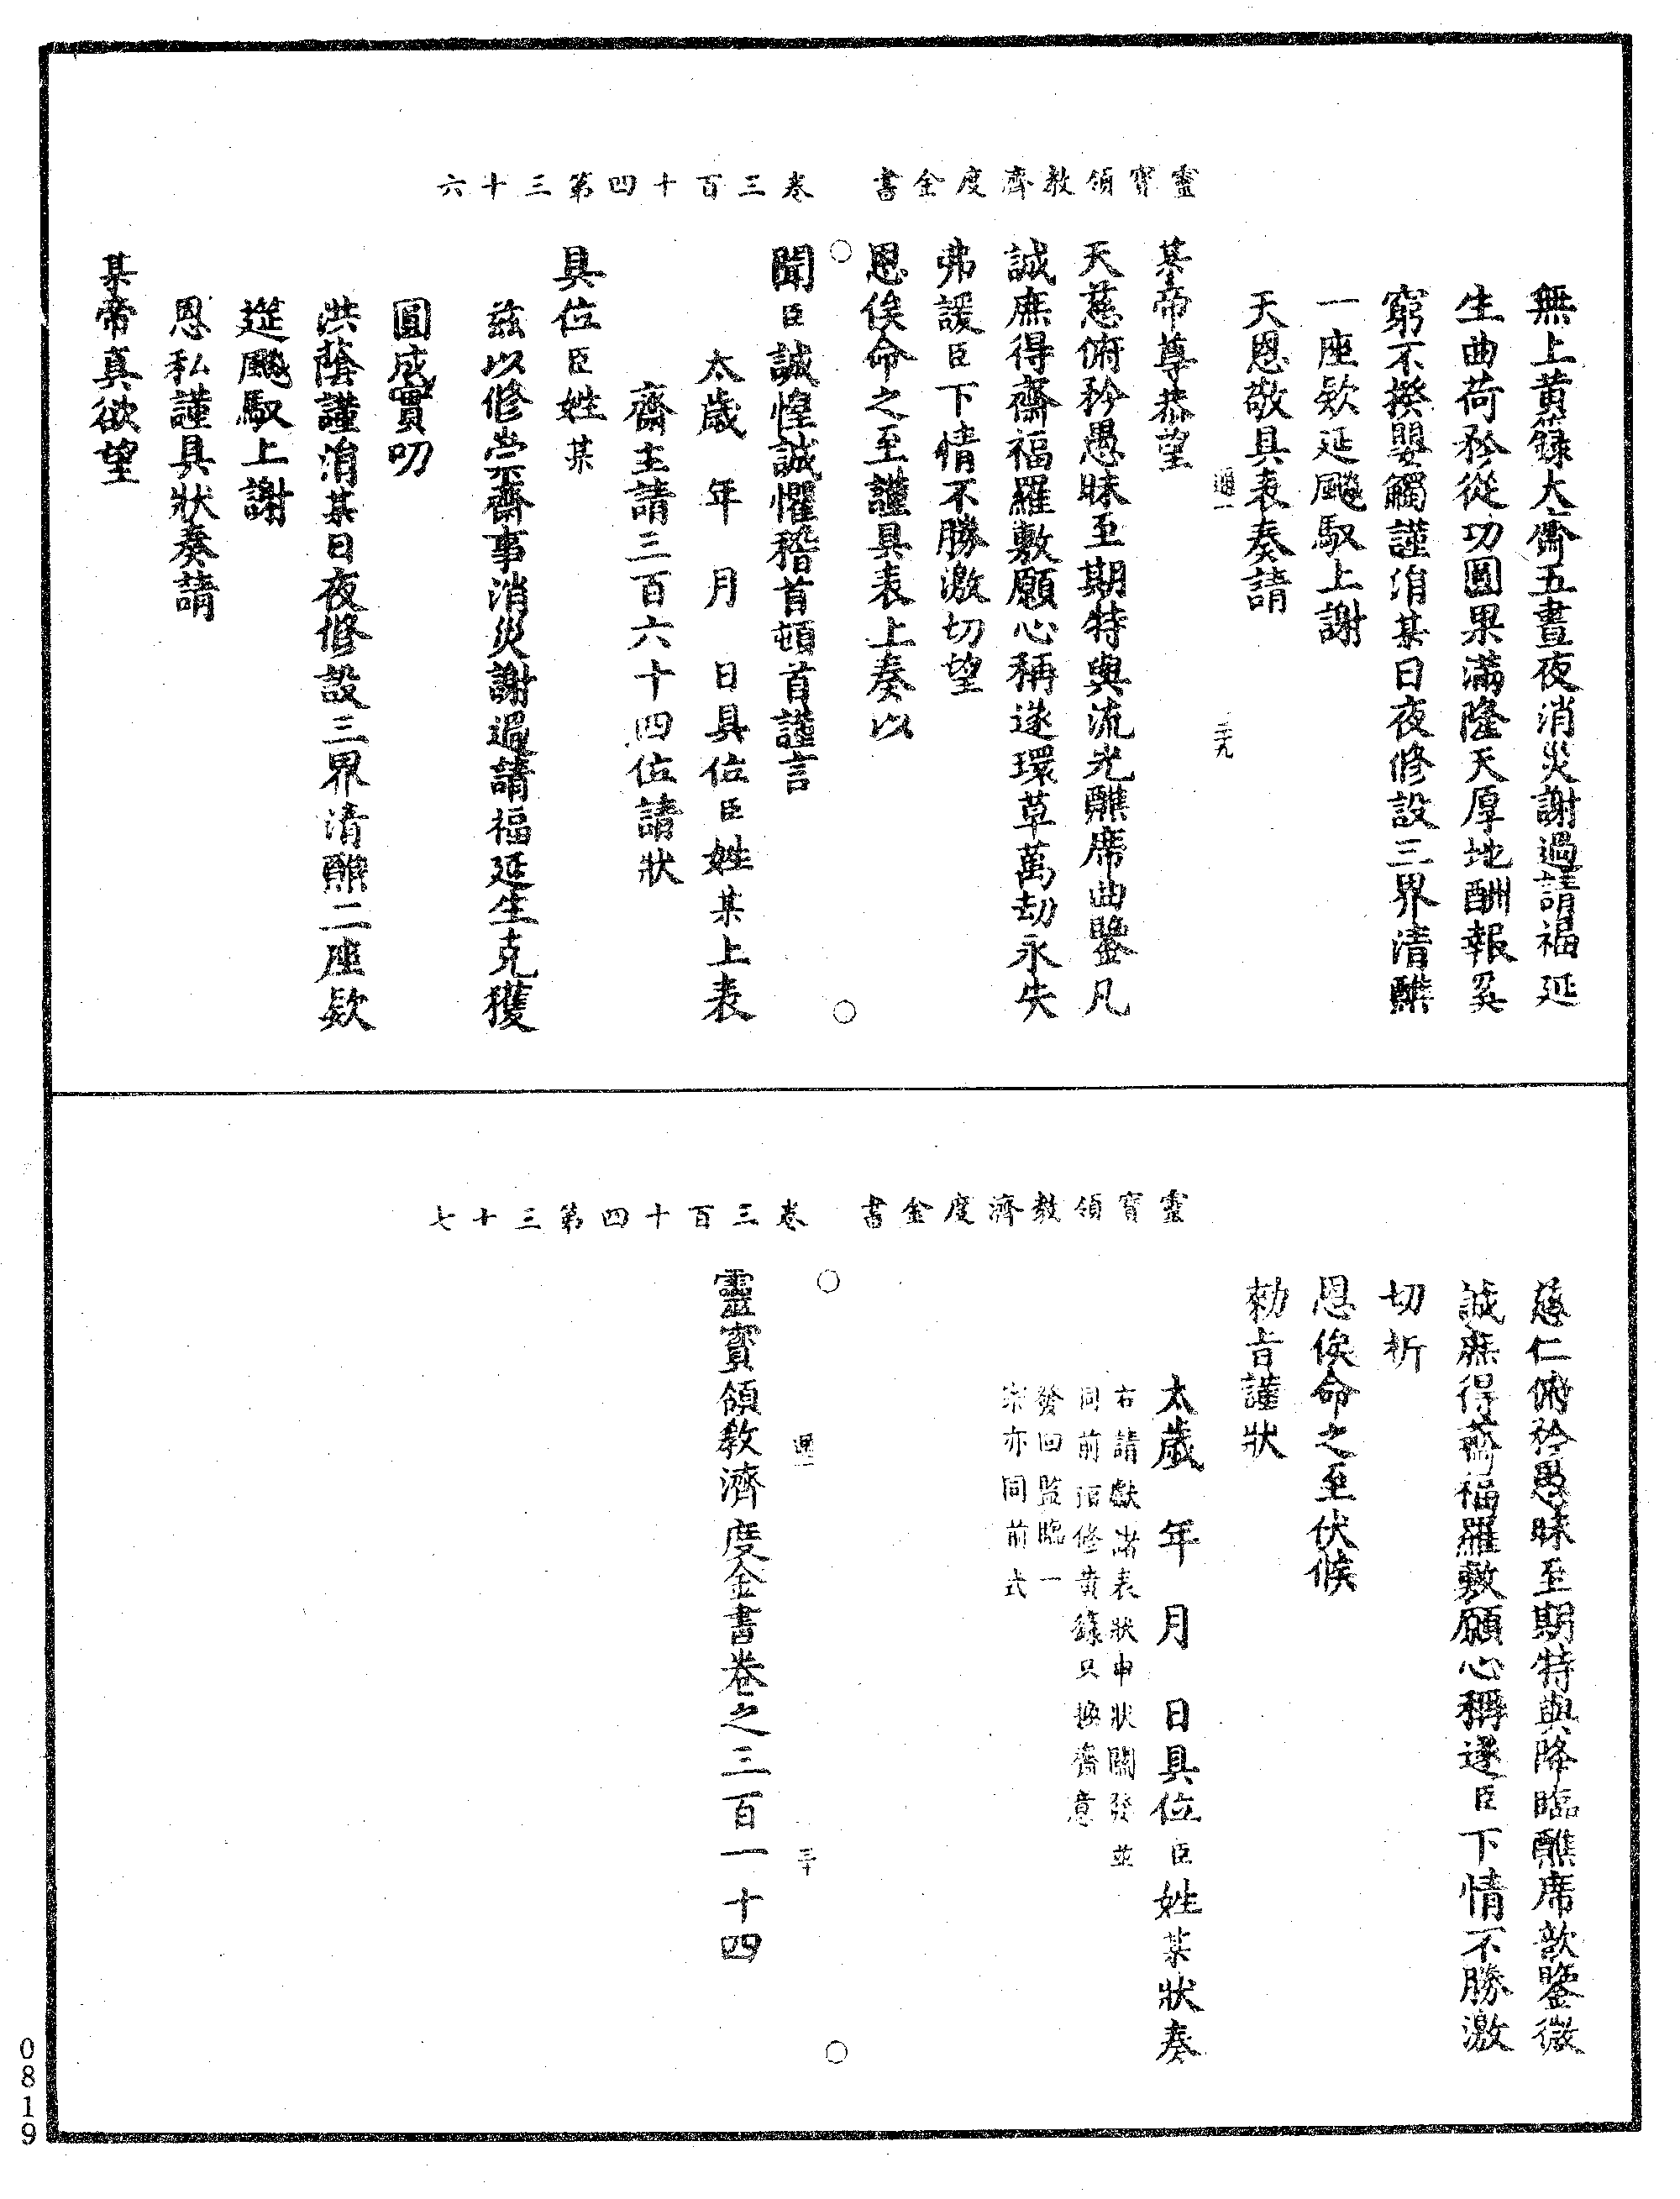 靈寶領教濟度金書　卷三百十四第三十六
無上黃籙大齋五晝夜消災謝過請福延
生曲荷矜從功圓果滿隆天厚地酬報奚
窮不揆嬰觸謹涓某日夜修設三界清醮
一座欵延飇馭上謝
天恩敬具表奏請
通一　二十九
某帝尊恭望
天慈俯矜愚昧至期特與流光醮席曲鑒凡
誠庶得齋福羅敷願心稱遂環草萬劫永矢
弗諼臣下情不勝激切望
恩俟命之至謹具表上奏以
聞臣誠惶誠懼稽首頓首謹言
太歲　年　月　日具位臣姓某上表
齋主請三百六十四位請狀
具位臣姓某
茲以修崇齋事消災謝過請福延生克獲
圓成實叨
洪蔭謹涓某日夜修設三界清醮二座欵
延飇馭上謝
恩私謹具狀奏請
某帝真欲望
靈寶領教濟度金書　卷三百十四第三十七
慈仁俯矜愚昧至期特與降臨醮席歆鑒微
誠庶得齋福羅敷願心稱遂臣下情不勝激
切祈
恩俟命之至伏候
勑旨謹狀
太歲　年　月　日具位臣姓某狀奏
右請獻諸表狀申狀關發並
同前預修黃籙只換齋意
發回監臨一
宗亦同前式
通一　三十
靈寶領教濟度金書卷之三百一十四
0819